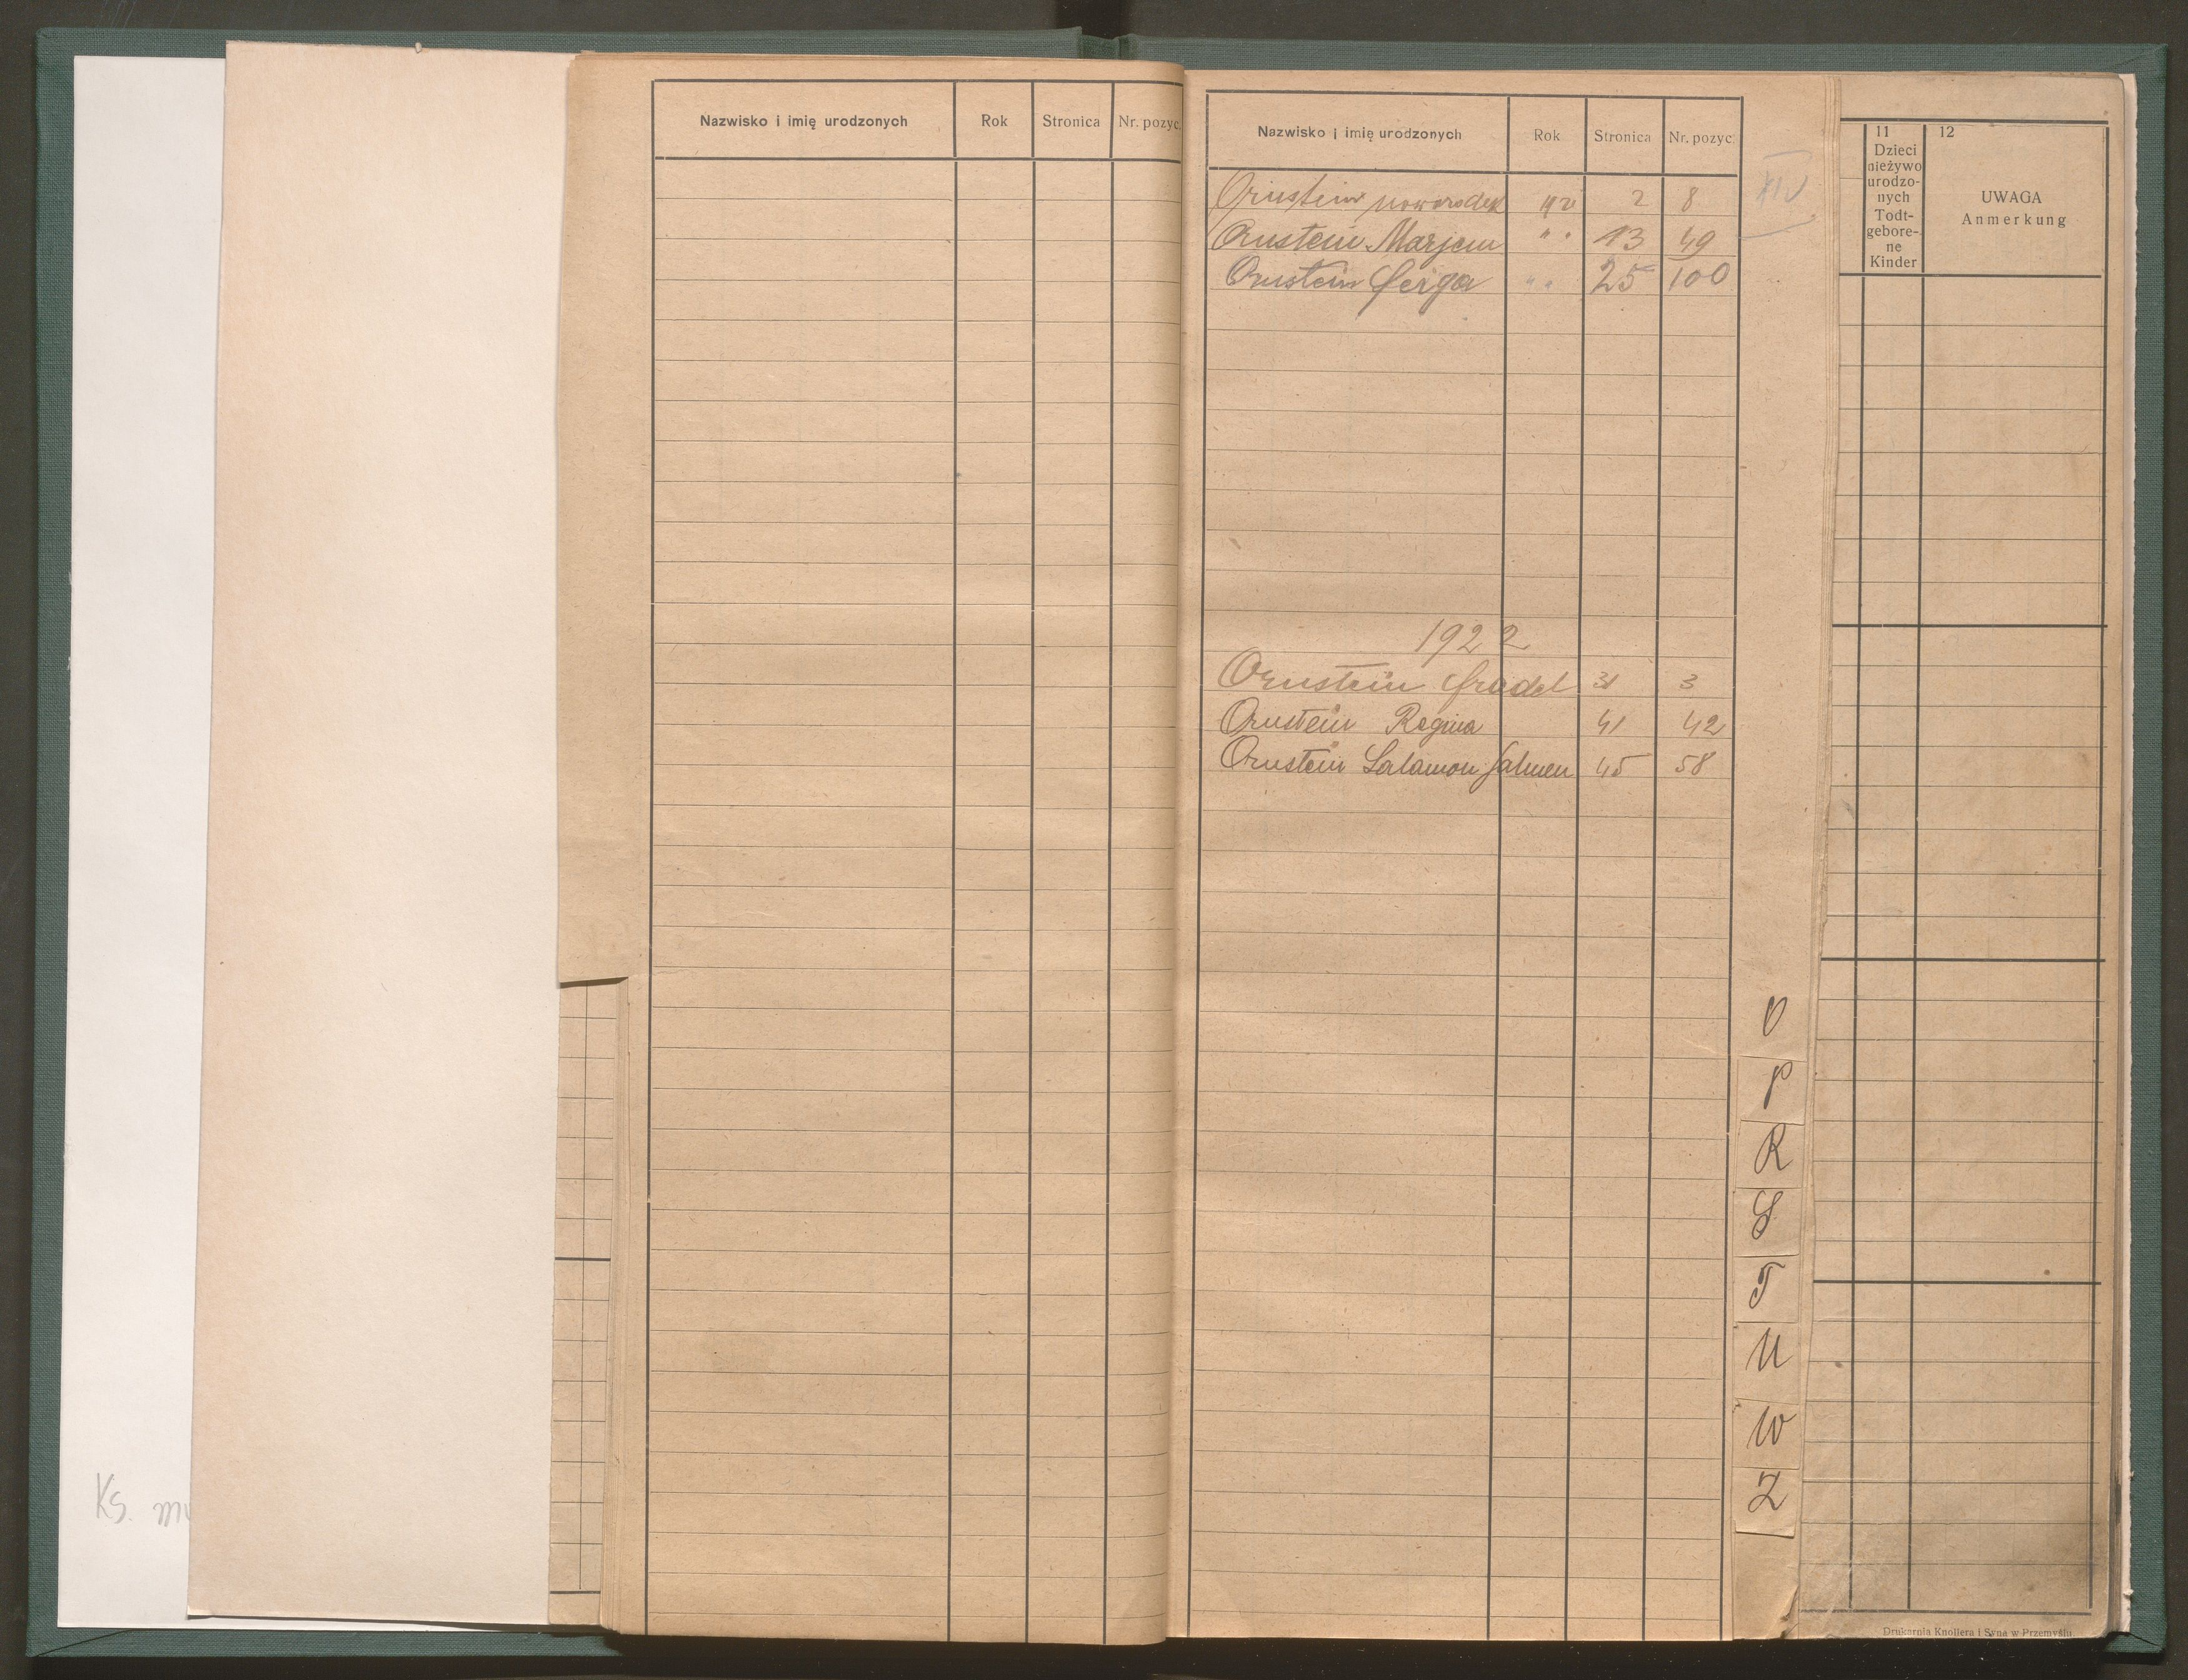 Nazwisko i imię urodzonych Rok Stronica Nr. pozyc.
Nazwisko i imię urodzonych Rok Stronica Nr. pozyc.
Ornstein noworodek 2 8
Ornstein Marjem " " 13 49
Ornstein " " 25 100
1922
Ornstein 31 3
Ornstein Regina 41 42
Ornstein Salamon Salmen 45 58
XIV
O
P
R
S
T
U
W
Z
11
Dzieci
nieżywo
urodzo-
nych
Todt-
gebore-
ne
Kinder
12
UWAGA
Anmerkung
Ks.
Drukarnia Knollera i Syna w Przemyślu.